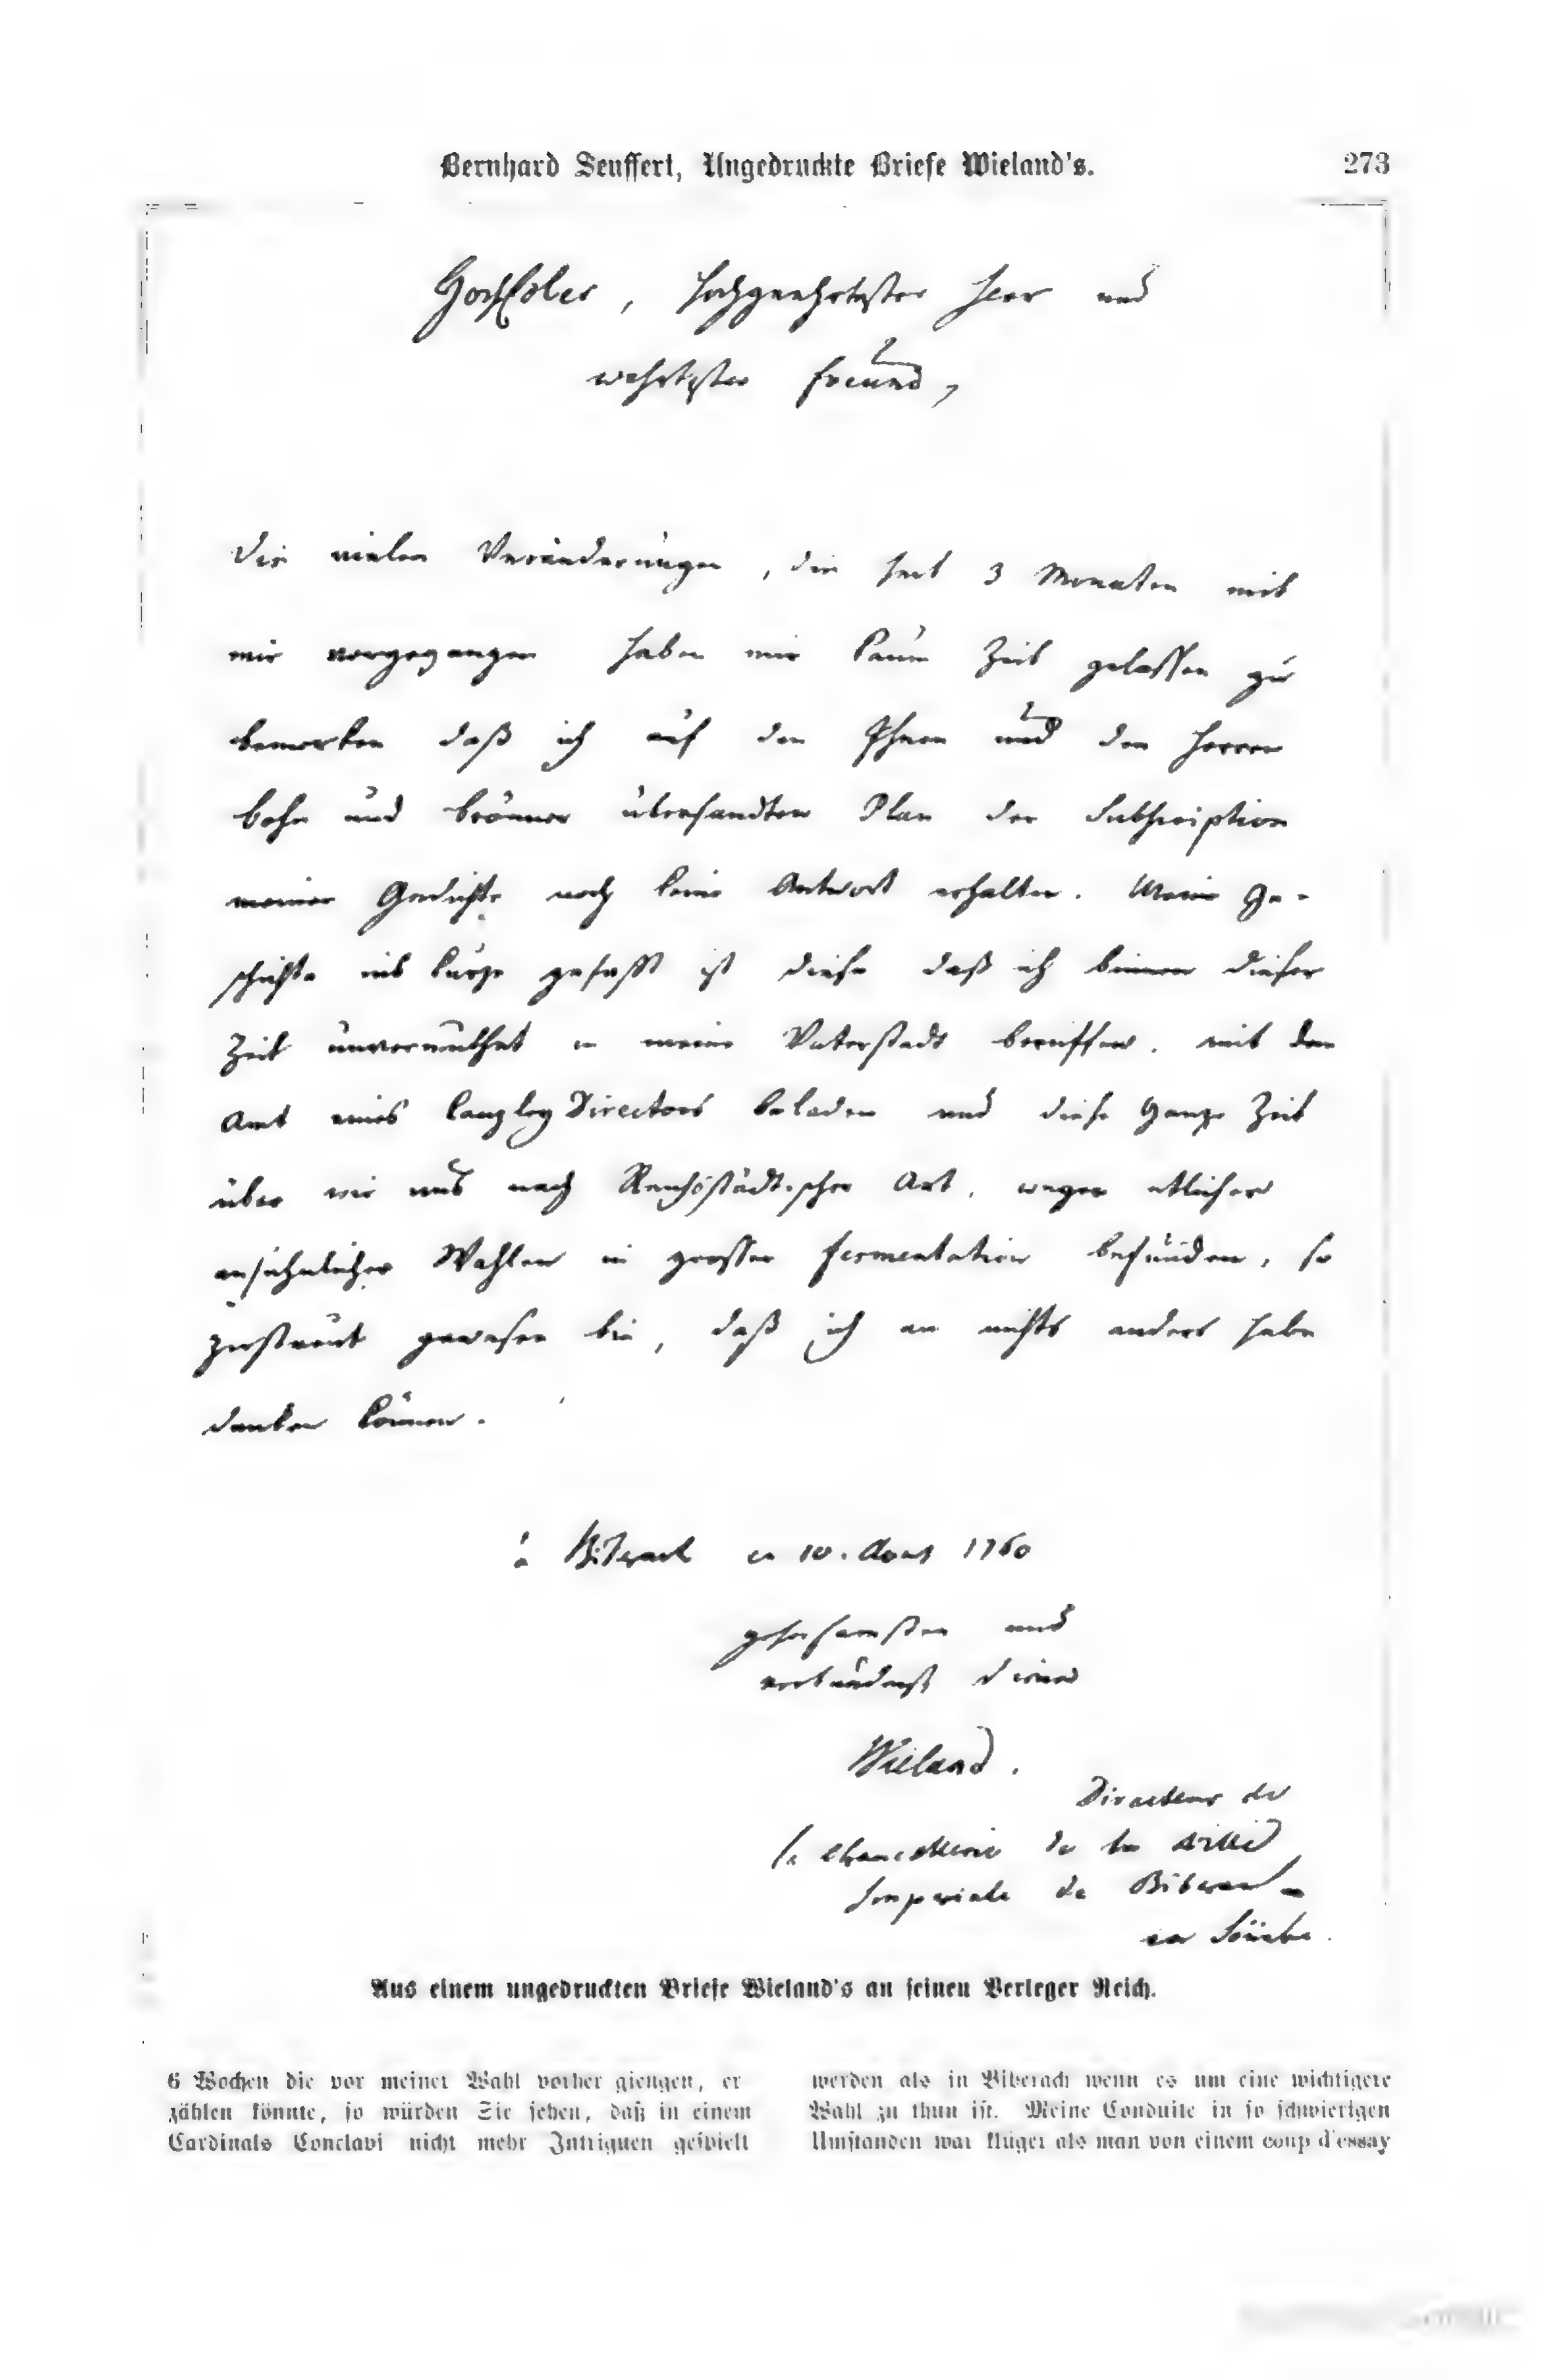 Bernhard Seuffert, Ungedruckte Briefe Wieland's.
273
HochEdler, hochgeehrtester Herr und
wehrtester Freund,
Die vielen Veränderungen, die seit 3 Monaten mit
mir vorgegangen haben mir kaum Zeit gelassen zu
bemerken daß ich auf den Ihnen und den Herren
Bohn und Brönner übersandten Plan der Subscription
meiner Gedichte noch keine Antwort erhalten. Meine Ge-
schichte ins kurze gefasst ist diese daß ich binnen dieser
Zeit unvermuthet in meine Vaterstadt beruffen, mit dem
Amt eines CanzleyDirectors beladen und diese ganze Zeit
über wir uns nach Reichsstädtischer Art, wegen etlicher
ansehnlicher Wahlen in grosser Fermentation befunden, so
zerstreut gewesen bin, daß ich an nichts anders habe
denken können.
à Biberach ce 10. Aout 1760
gehorsamster und
verbundenst Diener
Wieland.
Directeur de
la Chancellerie de la Ville
Imperiale de Biberac
en Souabe.
Aus einem ungedruckten Briefe Wieland's an seinen Verleger Reich.
6 Wochen die vor meiner Wahl vorher giengen, er
zählen könnte, so würden Sie sehen, daß in einem
Cardinals Conclavi nicht mehr Intriguen gespielt
werden als in Biberach wenn es um eine wichtigere
Wahl zu thun ist. Meine Conduite in so schwierigen
Umständen war klüger als man von einem coup d'essay